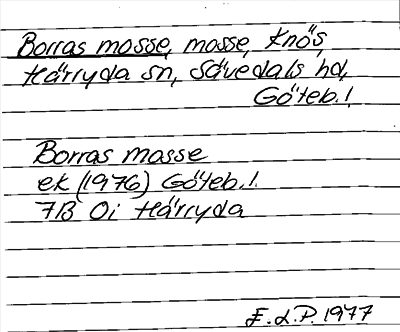 Borras mosse, mosse, Knös,
Härryda sn, Sävedals hd,
Göteb.l.
Borras mosse
ek (1976) Göteb.l.
7B 0i Härryda
E.L.P. 1977